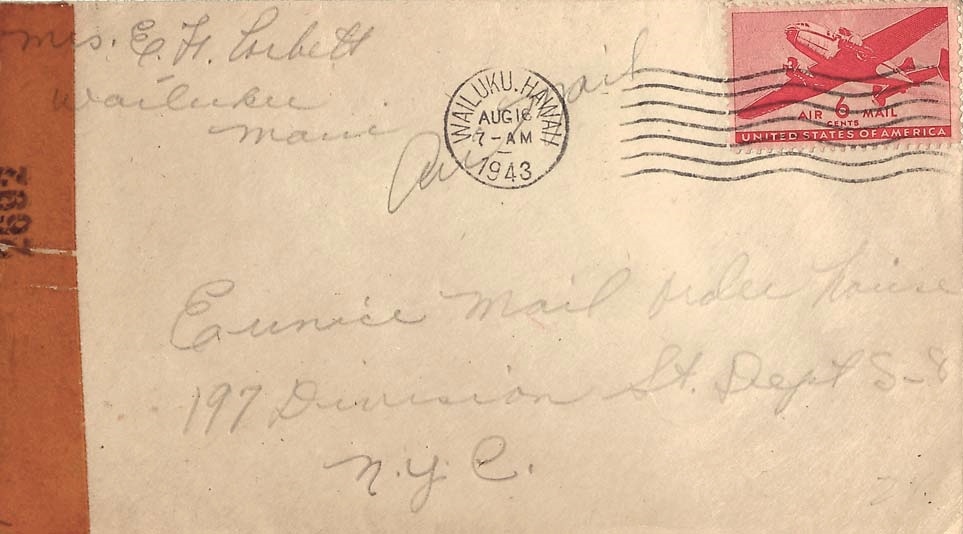 Mrs. E. H. Corbett
Wailuku
Maui
Air Mail
WAILUKU. HAWAII
AUG 16
7-AM
1943
6
CENTS
AIR MAIL
UNITED STATES OF AMERICA
Eunice Mail order house
197 Division St. Dept S-8
N.Y.C.